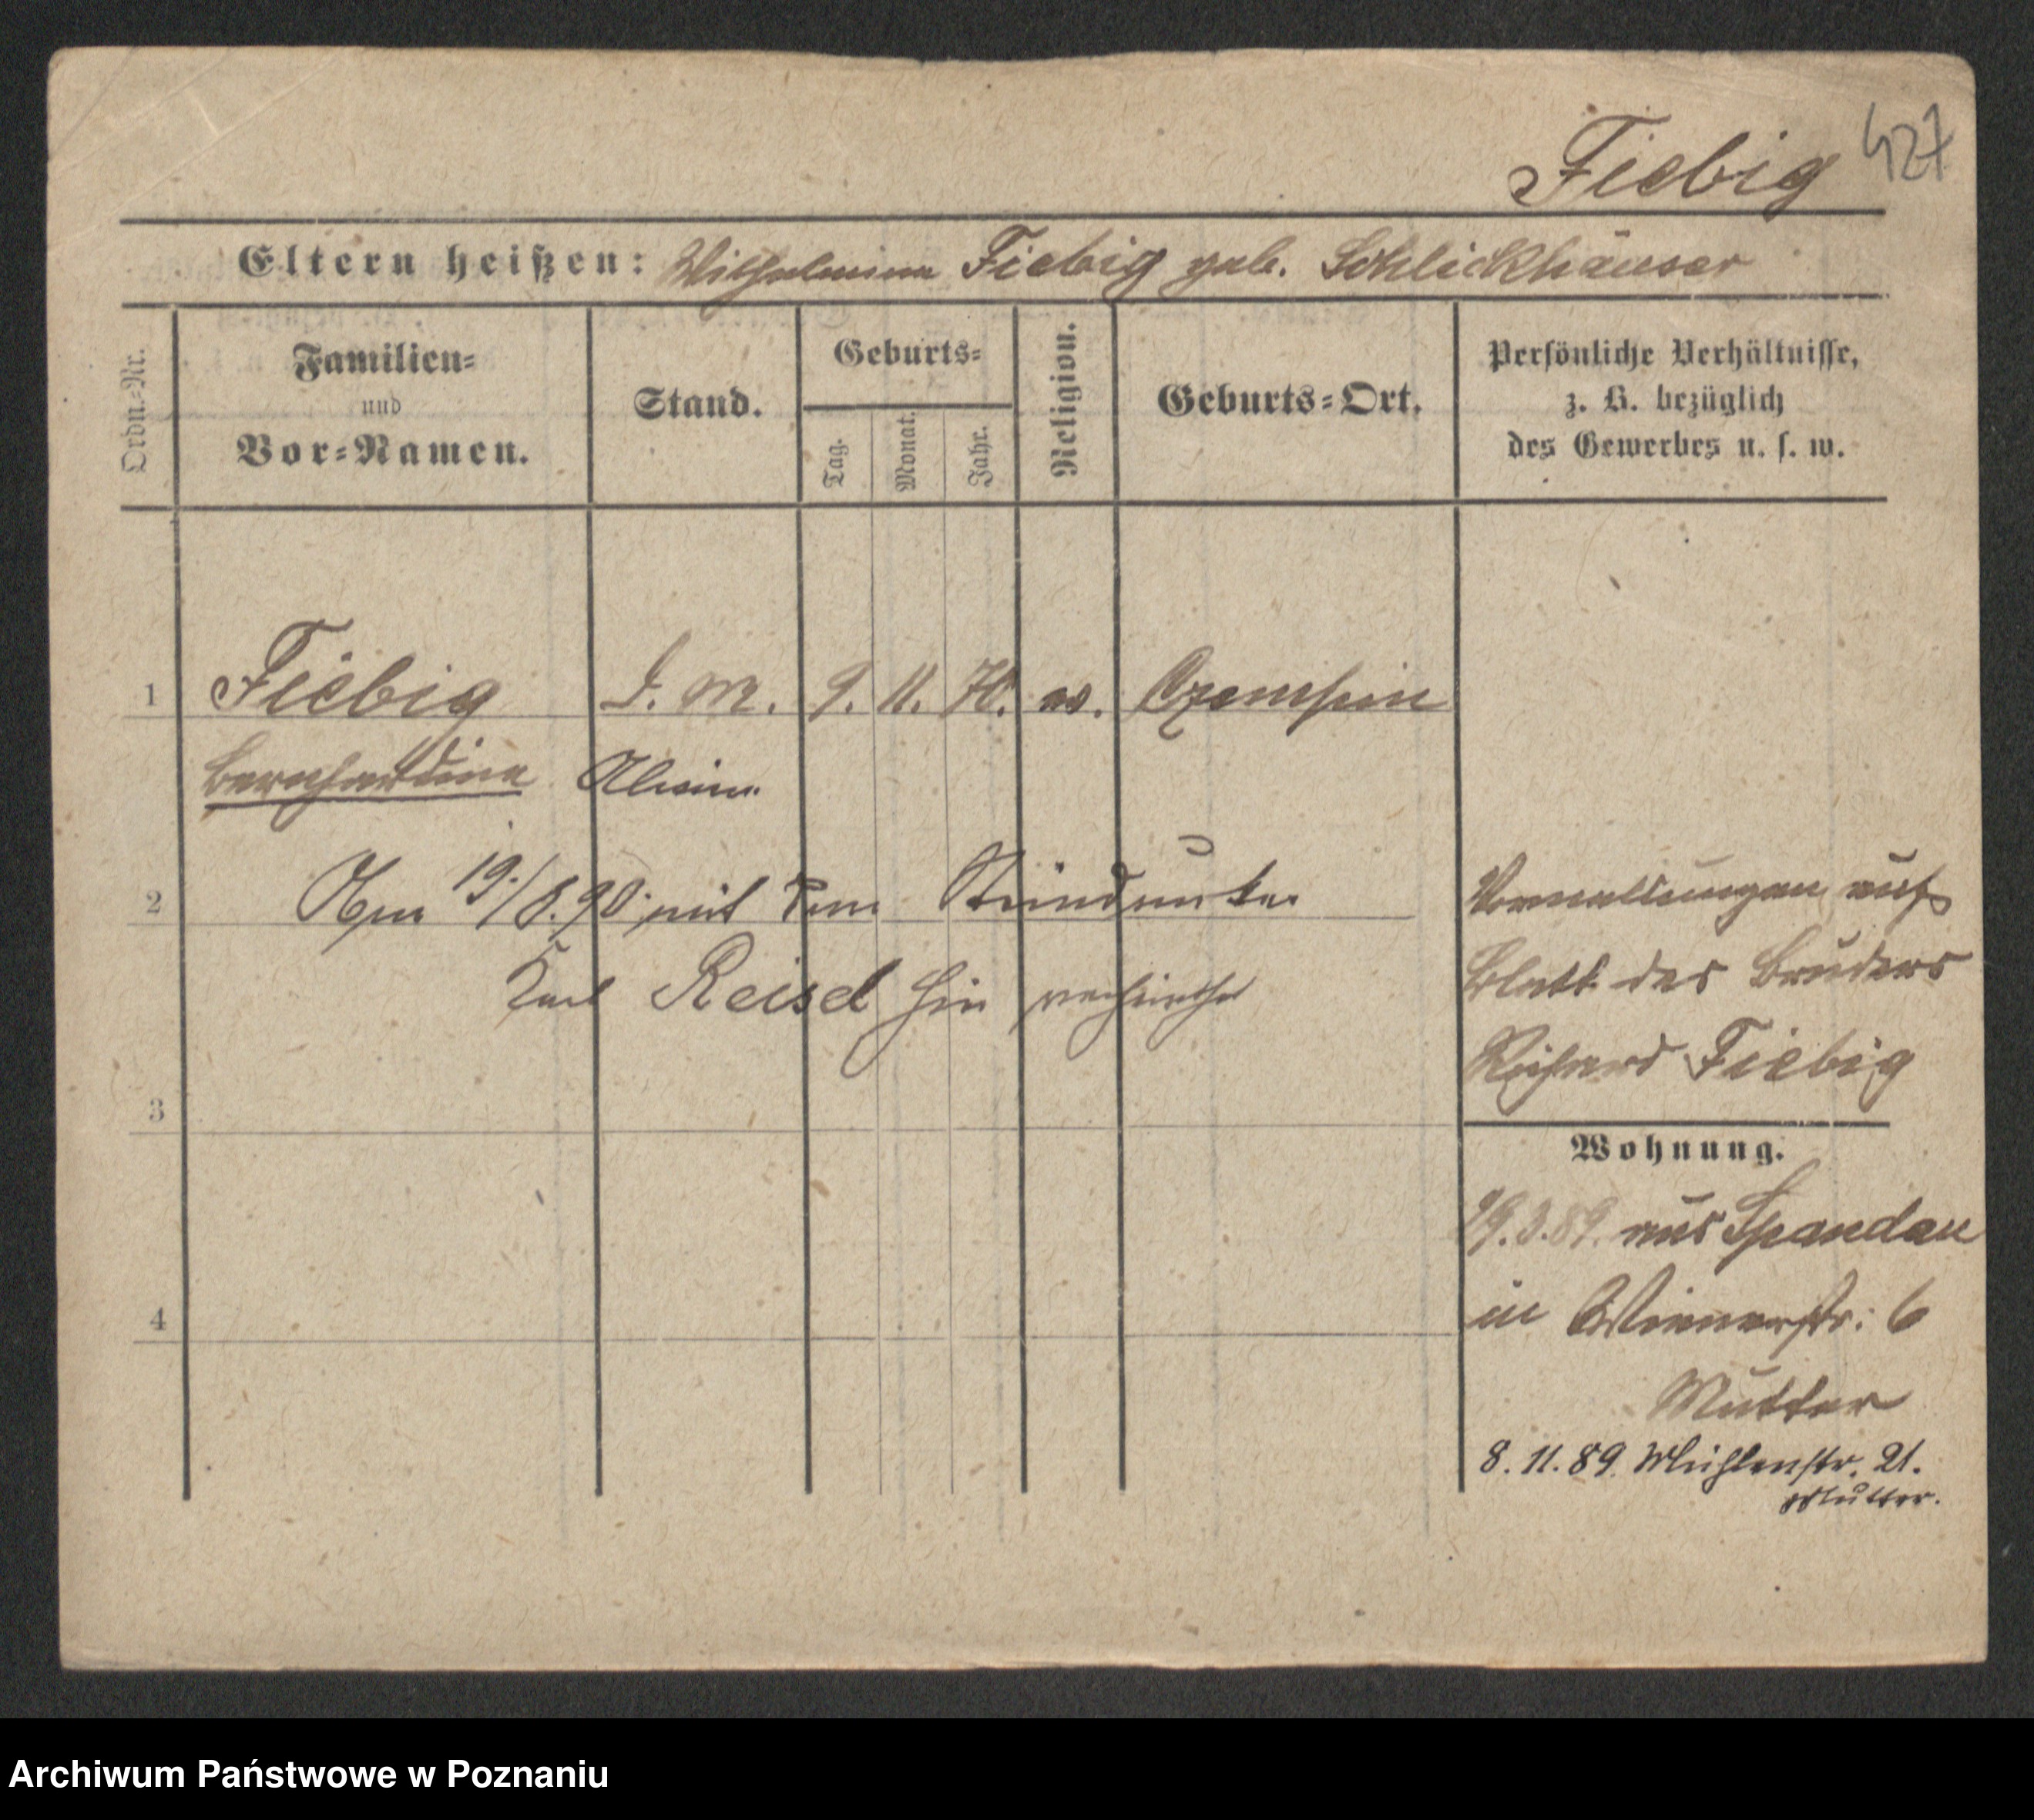 Fiebig 427
Eltern heißen: Wilhelmine Fiebig geb. Schlickhäuser
Ordn.=Nr.
Familien=
und
Vor=Namen.
Stand.
Geburts=
Tag.
Monat.
Jahr.
Religion.
Geburts=Ort.
Persönliche Verhältnisse,
z. B. bezüglich
des Gewerbes u. s. w.
1 Fiebig D. M. 9. 11. 70. ev. Czempin
Bernhardine
2 Am 19./8.90. mit dem
Karl Reisel hier
Vermerkungen auf
Blatt des Bruders
Richard Fiebig
3
Wohnung.
19.3.89. aus Spandau
in Wienerstr: 6
4
Mutter
8. 11. 89. Mühlenstr. 21.
Mutter.
Archiwum Państwowe w Poznaniu